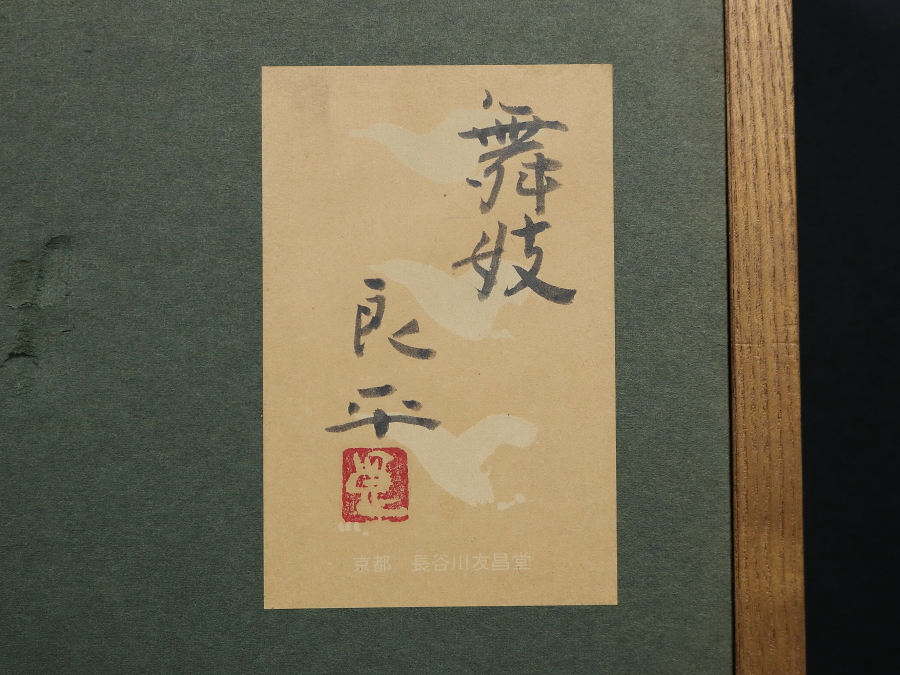 舞妓
良平
京都 長谷川友昌堂